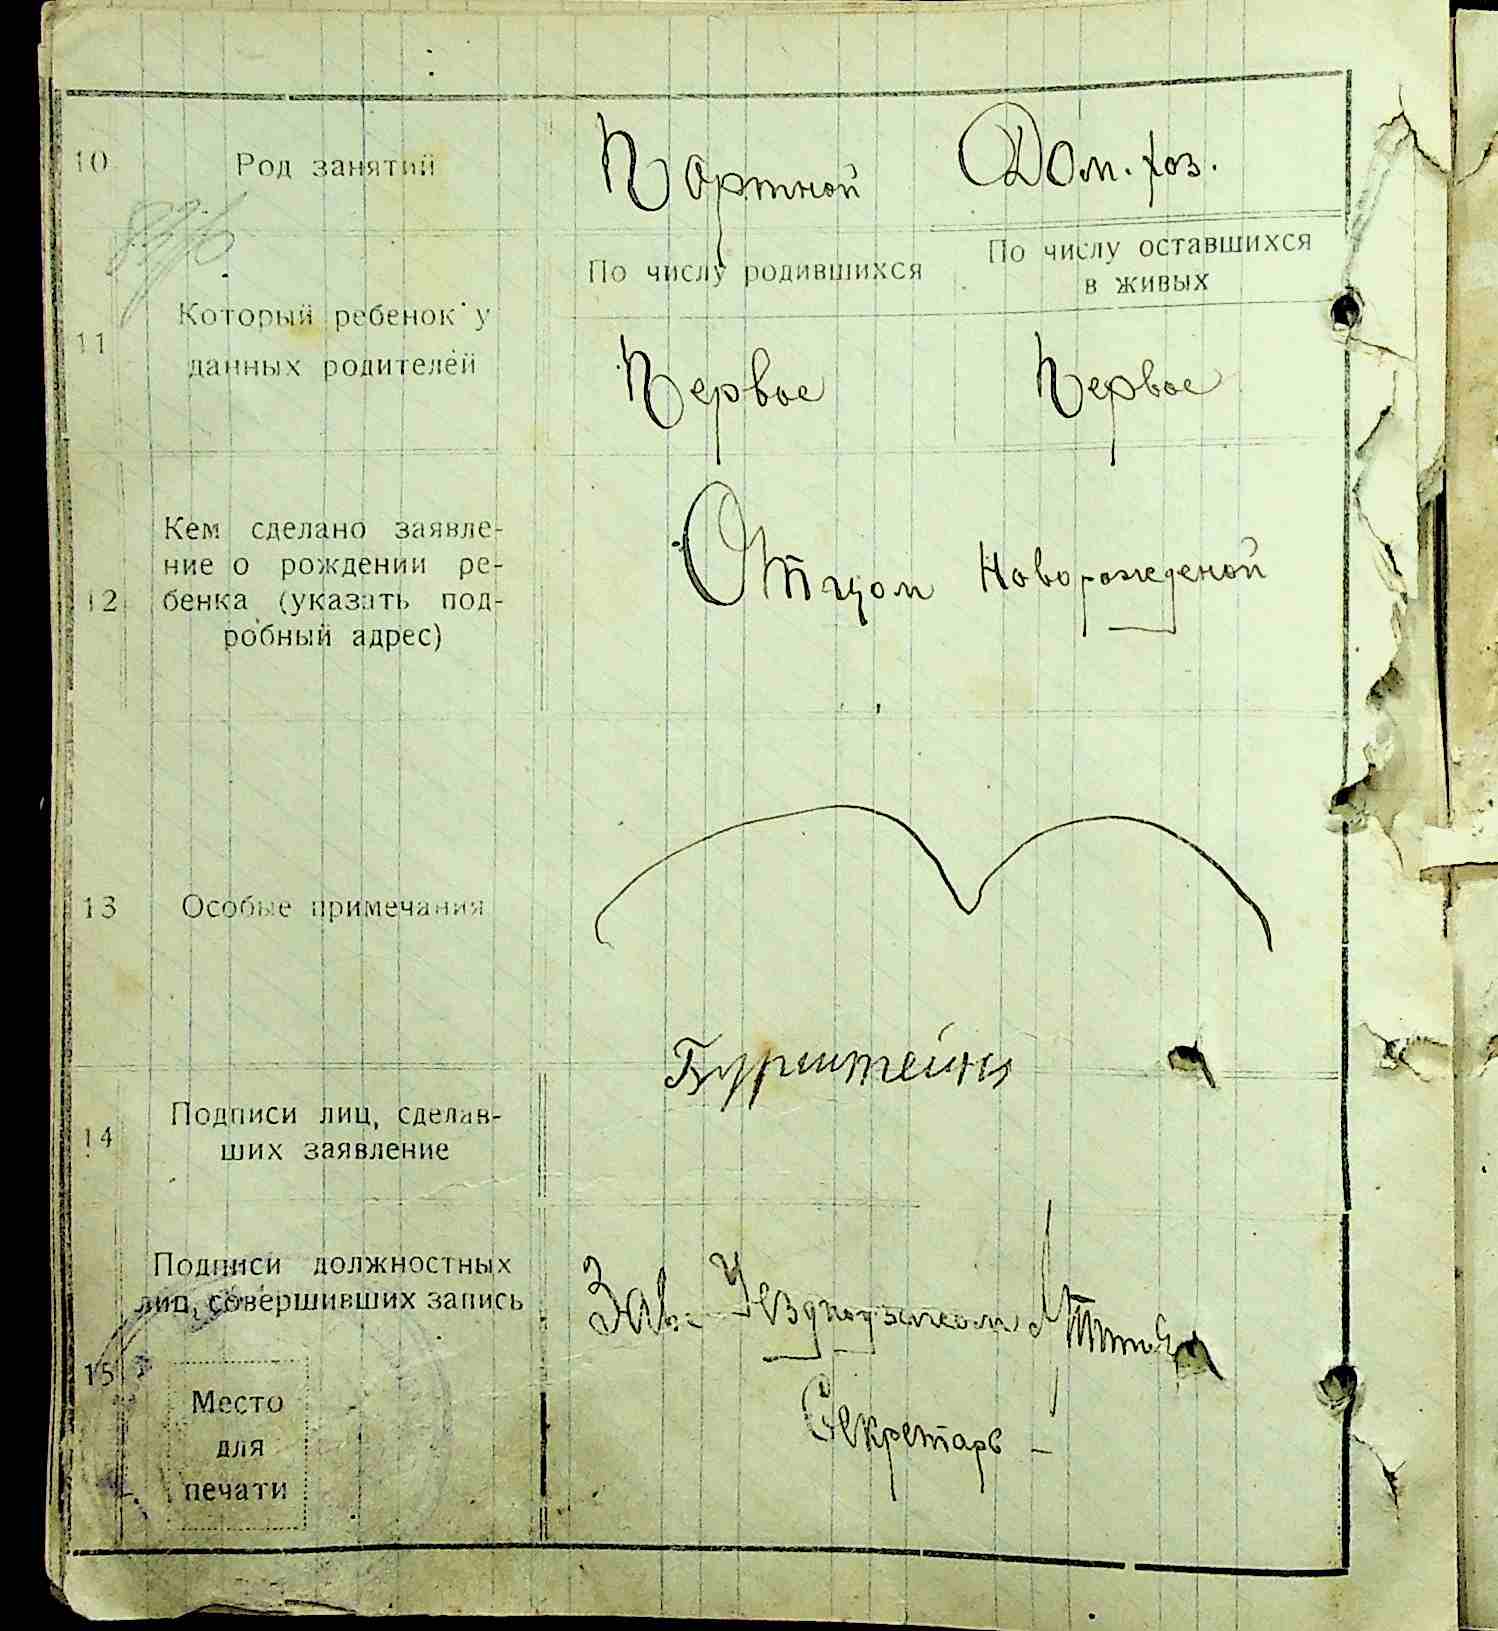 10 Род занятий Портной Дом. хоз.
По числу родившихся
По числу оставшихся
в живых
11 Который ребенок у
данных родителей
Первое Первое
12 Кем сделано заявле-
ние о рождении ре-
бенка (указать под-
робный адрес)
Отцом Новорожденой
13 Особые примечания
14 Подписи лиц, сделав-
ших заявление
Бурштейн
15 Подписи должностных
лиц, совершивших запись
Место
для
печати
Зав. Уездподзагсом
Секретарь –